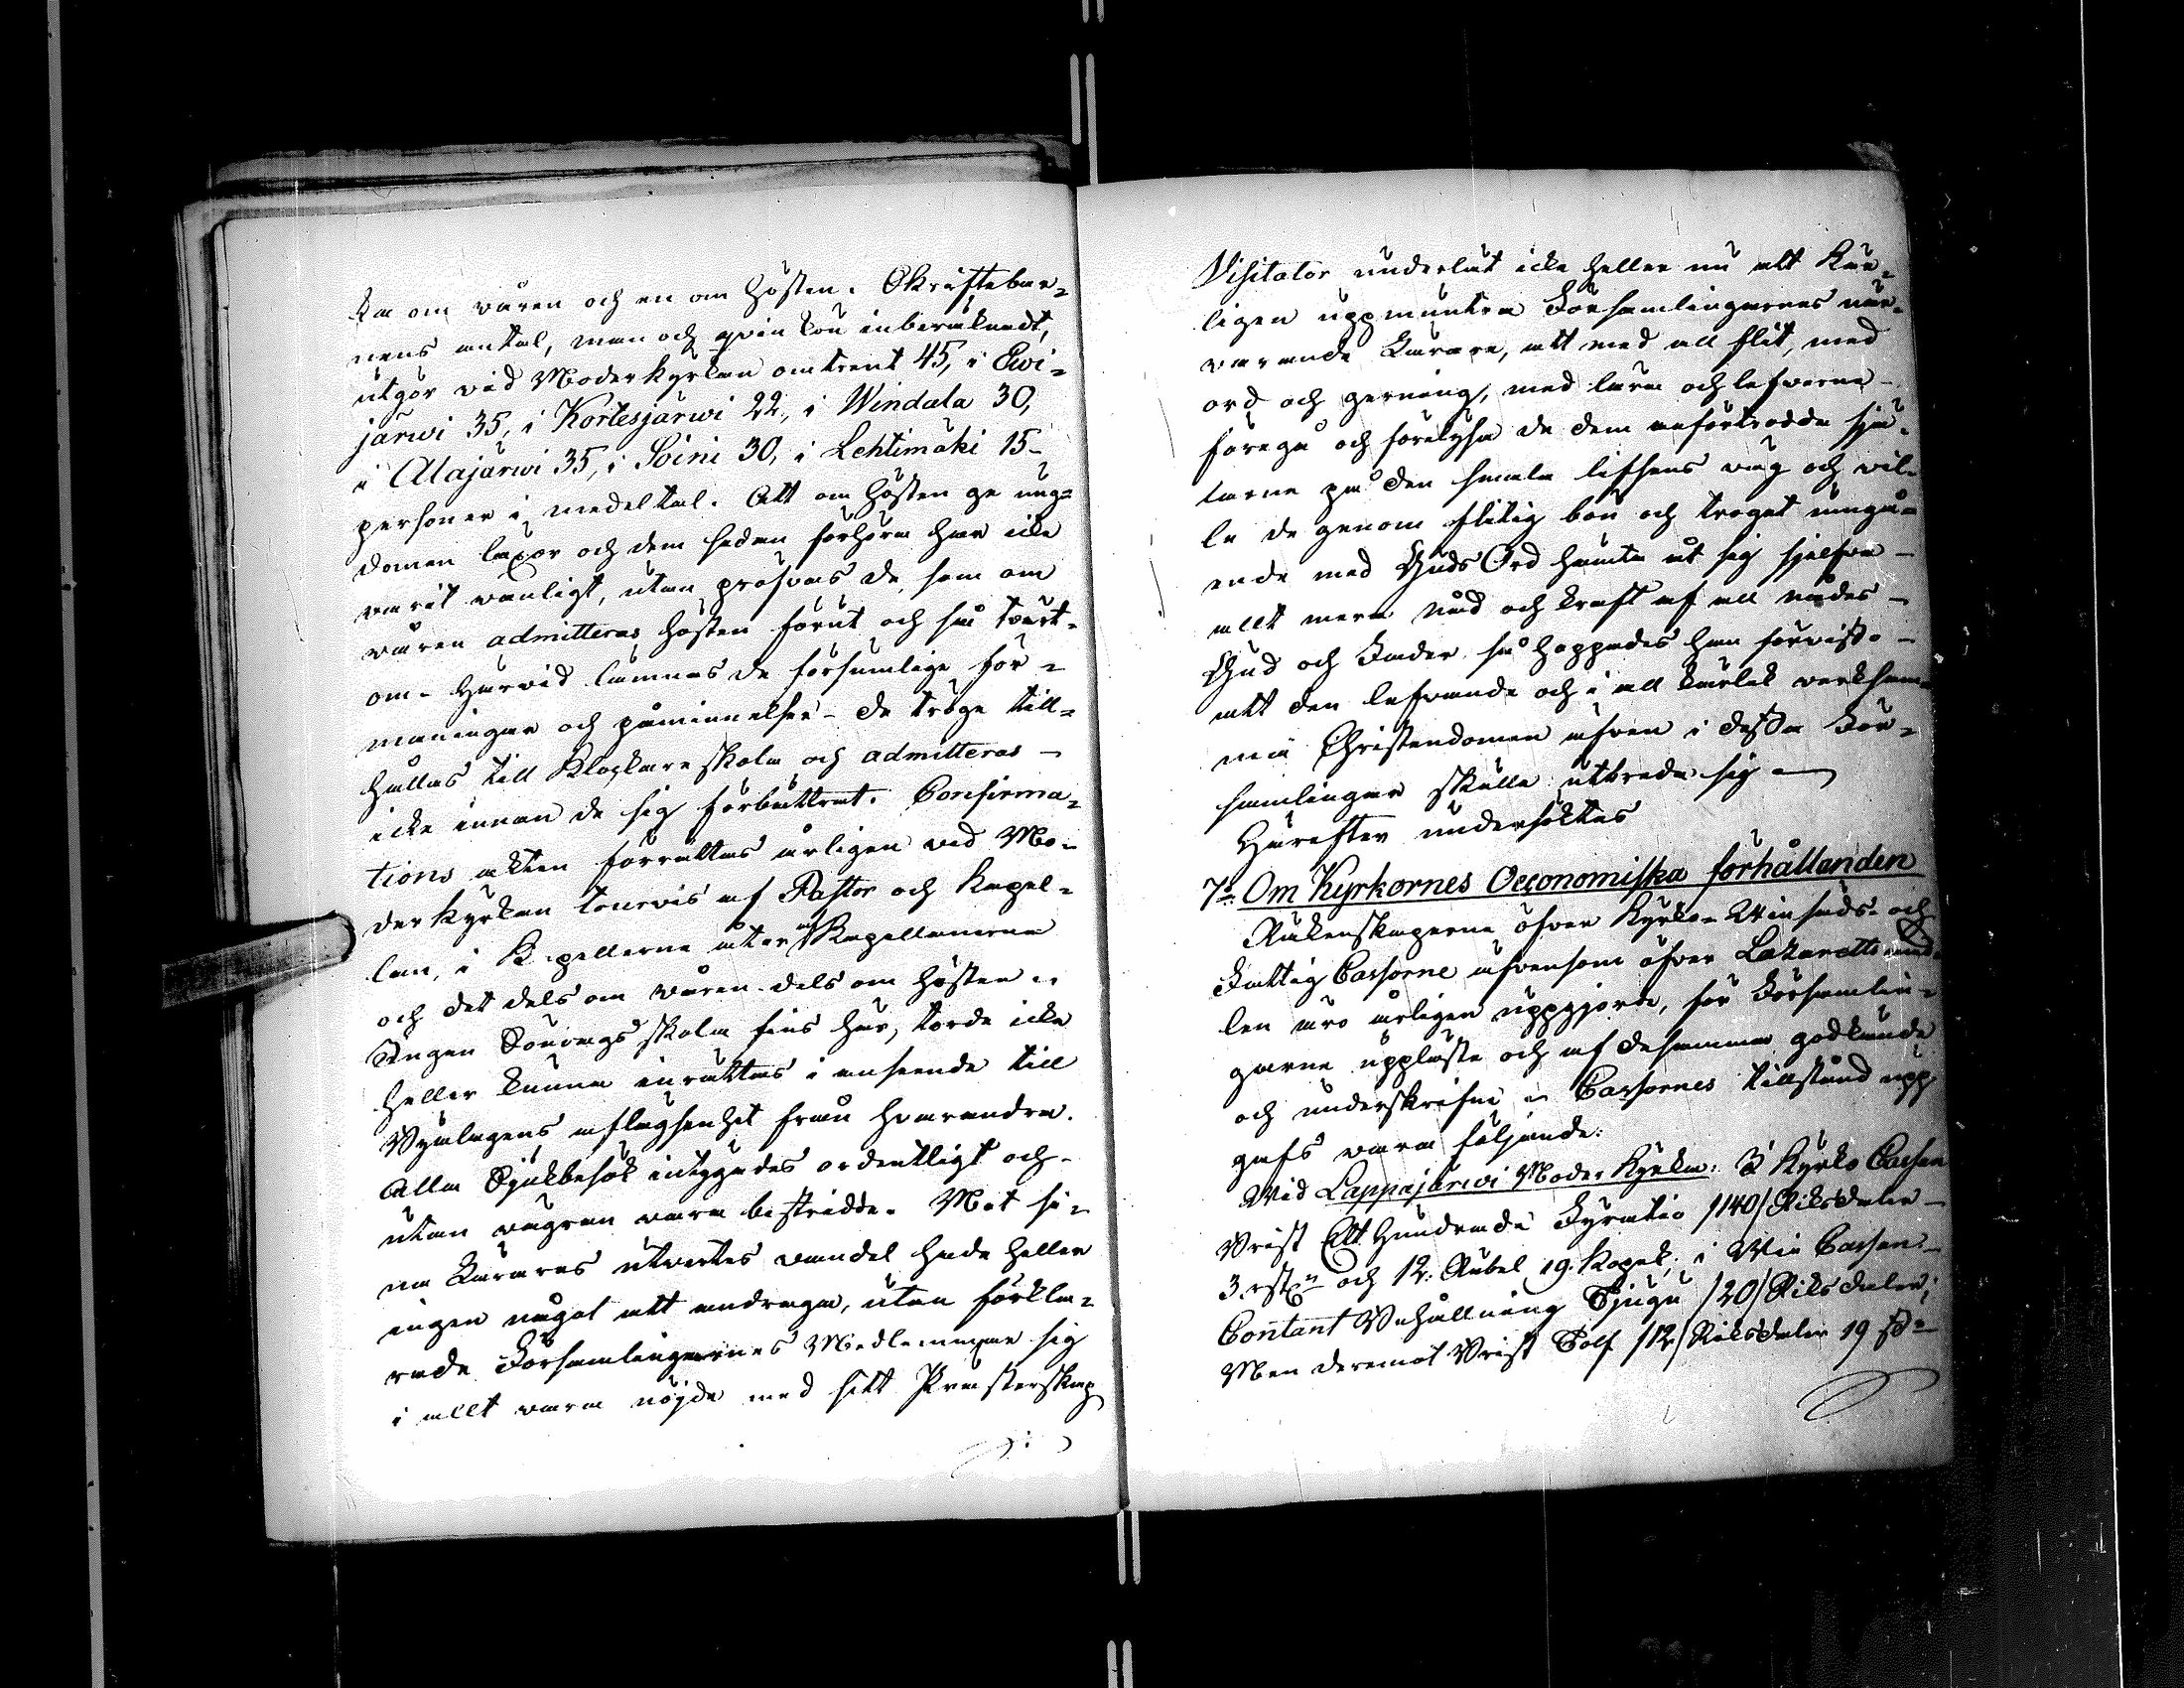 ka om våren och en om hösten. Skriftebar-
nens antal, man och qvinkön inberäknadt,
utgör vid Moderkyrkan omtrent 45, i Ewi-
järwi 35, i Kortesjärwi 22, i Windala 30,
i Alajärwi 35, i Soini 30, i Lehtimäki 15-
personer i medeltal. Att om hösten ge ung-
domen laxor och dem sedan förhöra har icke
varit vanligt, utan pröfvas de, som om
våren admitteras hösten förut och så tvert-
om - Härvid lämnas de försumlige för-
maningar och påminnelser - de tröge till-
hållas till Klockareskola och admitteras -
icke innan de sig förbättrat. Confirma-
tions akten förrättas årligen vid Mo-
derkyrkan tourvis af Pastor och Kapel-
lan, i Kapellerne åter af Kapellanerna
och det dels om våren dels om hösten -
Ingen Söndags skola fins här, torde icke
heller kunna inrättas i anseende till
Byalagens aflägsenhet från hvarandra.
Alla Sjukbesök intygades ordentligt och -
utan vägran vara bestridde. Mot si-
na Lärares utvertes vandel hade heller
ingen något att andraga, utan förkla-
rade Församlingarnes Medlemmar sig
i allt vara nöjda med sitt Presterskap
Visitator underlät icke heller nu att kär-
ligen uppmuntra Församlingarnes när-
varande Lärare, att med all flit, med
ord och gerning, med lära och lefverne -
föregå och förelysa de dem anförtrodda sjä-
larne på den smala lifsens väg och vil-
le de genom flitig bön och troget umgå-
ende med Guds Ord hämta åt sig sjelfva -
allt mera nåd och kraft af all nådes -
Gud och Fader, så hoppades han förvisso -
att den lefvande och i all kärlek verksam-
ma Christendomen äfven i dessa För-
samlingar skulle utbreda sig -
Härefter undersöktes
7:o Om Kyrkornes Oeconomiska förhållanden
Räkenskaperna öfver Kyrko- Winsäds- och
Fattig Cassorne äfvensom öfver Lazaretts med-
len äro årligen uppgjorda, för Församlin-
garne uppläste och af desamma godkände
och underskrifne - Cassornes tillstånd upp-
gafs vara följande:
Wid Lappajärwi Moder Kyrka: I Kyrko Cassan
Brist Ett Hundrade Fyratio /140/ Riksdaler -
3. rst. och 12. Rubel 19. Kopek; i Win Cassan -
Contant Behållning Tjugu /20/ Riksdaler;
Men deremot Brist Tolf /12/ Riksdaler 19 sk